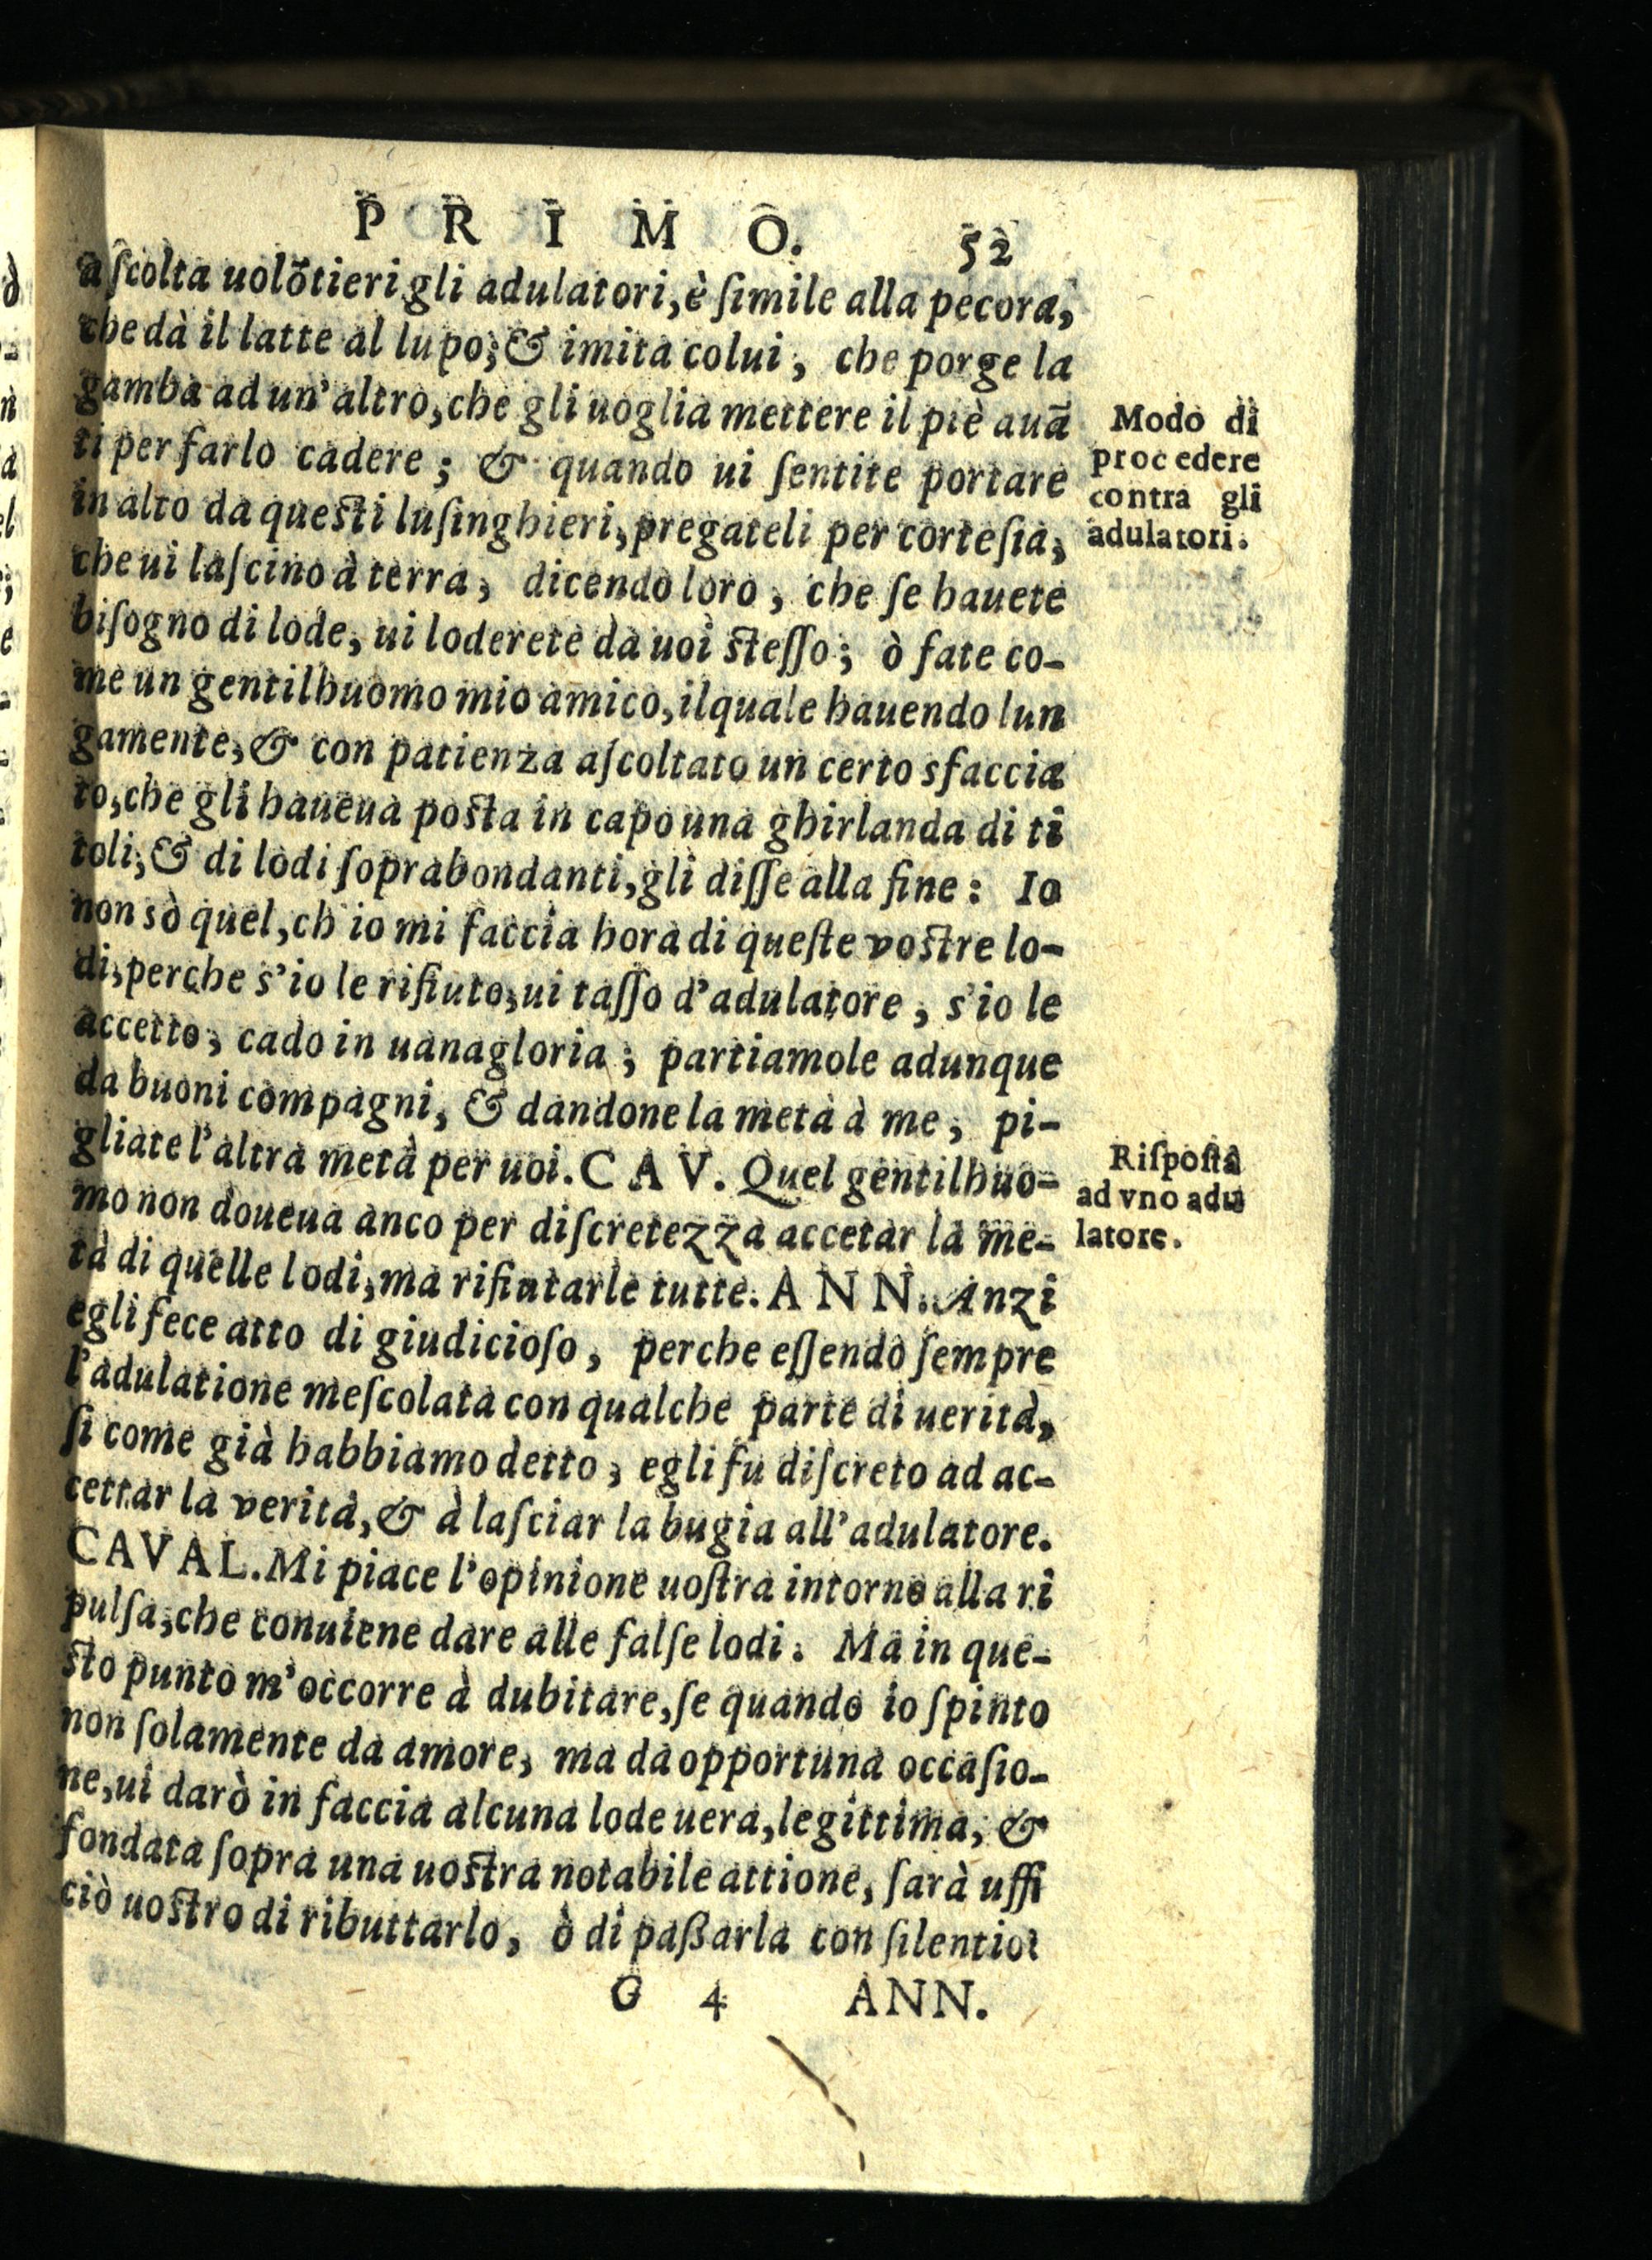 PRIMO. 52
aſcolta uolõtieri gli adulatori, è ſimile alla pecora,
che dà il latte al lupo; & imita colui, che porge la
gamba ad un'altro, che gli uoglia mettere il piè auã
ti per farlo cadere; & quando ui ſentite portare
in alto da queſti luſinghieri, pregateli per corteſia,
che ui laſcino à terra, dicendo loro, che ſe hauete
biſogno di lode, ui loderete da uoi ſteſſo; ò fate co-
me un gentilhuomo mio amico, ilquale hauendo lun
gamente, & con patienza aſcoltato un certo sfaccia
to, che gli haueua poſta in capo una ghirlanda di ti
toli, & di lodi ſoprabondanti, gli diſſe alla fine: Io
non sò quel, ch'io mi faccia hora di queſte voſtre lo-
di, perche s'io le rifiuto, ui taſſo d'adulatore, s'io le
accetto, cado in uanagloria; partiamole adunque
da buoni compagni, & dandone la metà à me, pi-
gliate l'altra metà per uoi. CAV. Quel gentilhuo-
mo non doueua anco per diſcretezza accetar la me-
tà di quelle lodi, ma rifiutarle tutte. ANN. Anzi
egli fece atto di giudicioſo, perche eſſendo ſempre
l'adulatione meſcolata con qualche parte di uerità,
ſi come già habbiamo detto, egli fu diſcreto ad ac-
cettar la verità, & à laſciar la bugia all'adulatore.
CAVAL. Mi piace l'opinione uoſtra intorno alla ri
pulſa, che conuiene dare alle falſe lodi. Ma in que-
ſto punto m'occorre à dubitare, ſe quando io ſpinto
non ſolamente da amore, ma da opportuna occaſio-
ne, ui darò in faccia alcuna lode uera, legittima, &
fondata ſopra una uoſtra notabile attione, ſarà uffi
ciò uoſtro di ributtarlo, ò di paßarla con ſilentio?
G 4 ANN.
Modo di
procedere
contra gli
adulatori.
Riſpoſta
ad vno adu
latore.